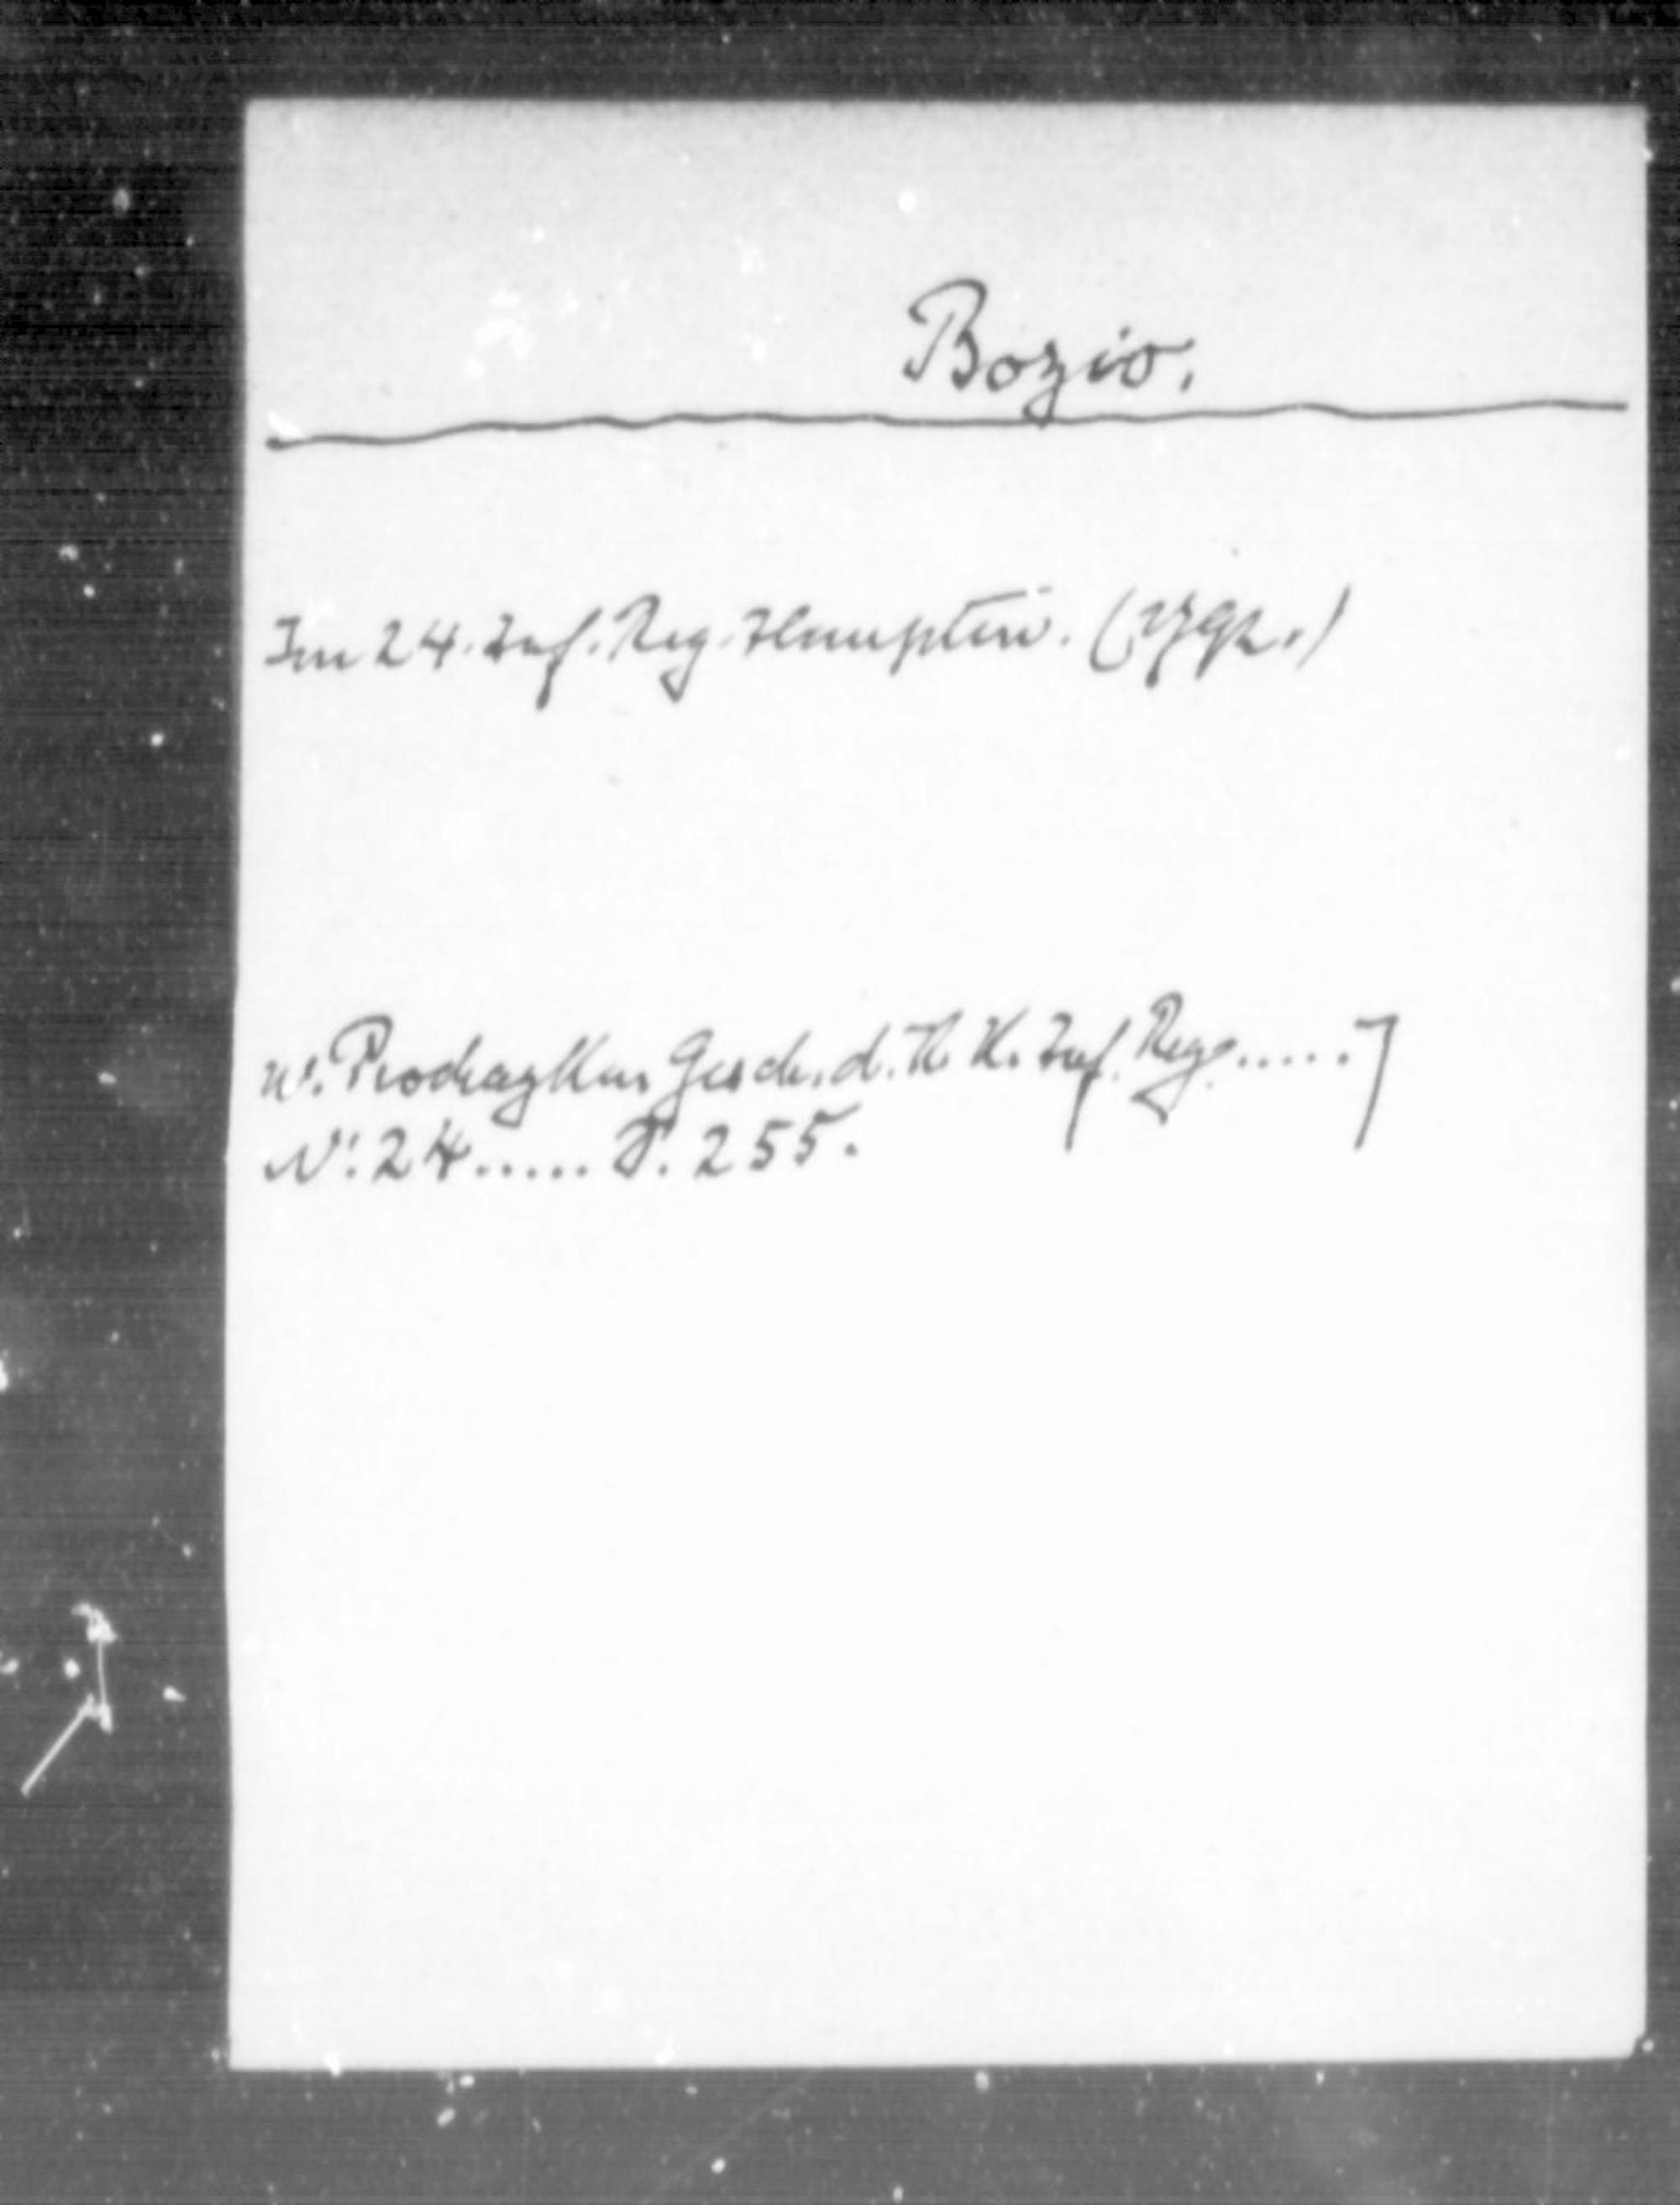 Bozio.
Im 24. Inf. Reg. Hauptm. (1792.)
W. Prochazka, Gesch. d. K. K. Inf. Reg.....
Nr. 24..... S. 255.